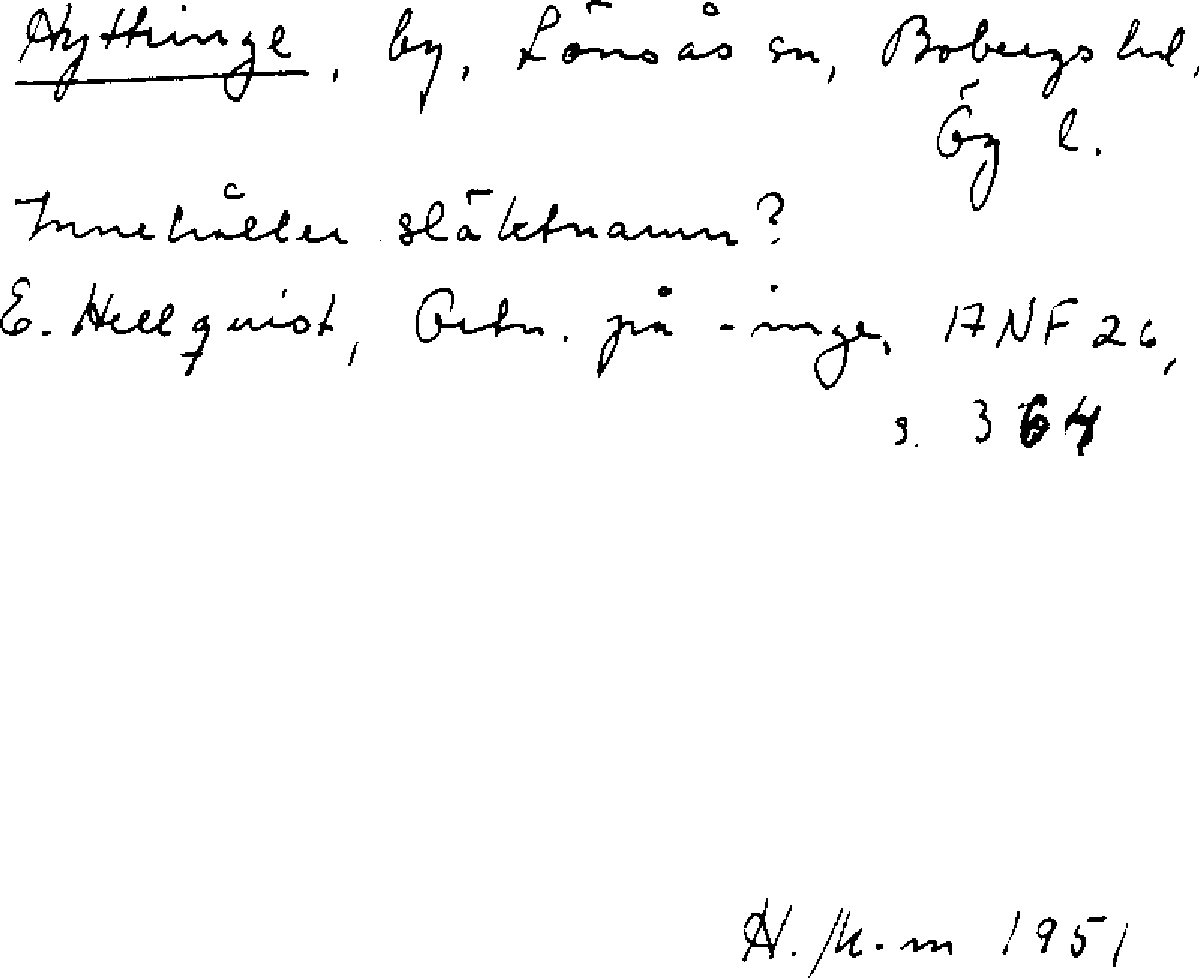 Hyttringe, by, Lönsås sn, Bobergs hd,
Ög l.
Innehåller släktnamn?
E. Hellquist, Ortn. på -inge, ANF 26,
s. 364
H. 1951